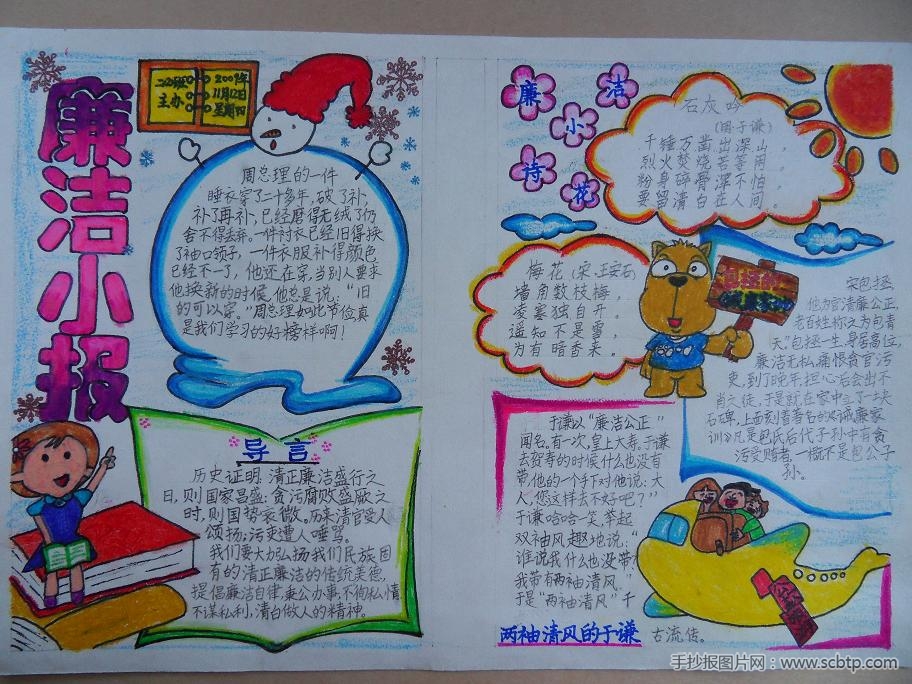 廉洁小报
二（2）班
主办
2009年
11月12日
星期四
周总理的一件
睡衣穿了二十多年，破了补，
补了再补，已经磨得无绒了仍
舍不得丢弃。一件衬衣已经旧得换
了袖口领子，一件衣服补得颜色
已经不一了，他还在穿，当别人要求
他换新的时候，他总是说：“旧
的可以穿。”周总理如此节俭真
是我们学习的好榜样啊！
导言
历史证明：清正廉洁盛行之
日，则国家昌盛；贪污腐败盛厥之
时，则国势衰微。历来清官受人
颂扬；污吏遭人唾骂。
我们要大力弘扬我们民族固
有的清正廉洁的传统美德，
提倡廉洁自律，秉公办事，不徇私情，
不谋私利，清白做人的精神。
廉洁
小
诗花
石灰吟
（明于谦）
千锤万凿出深山，
烈火焚烧若等闲，
粉身碎骨浑不怕，
要留清白在人间。
梅花（宋·王安石）
墙角数枝梅，
凌寒独自开。
遥知不是雪，
为有暗香来。
宋包拯
他为官清廉公正
老百姓称之为包青
天”包拯一生，身居高位，
廉洁无私，痛恨贪官污
吏，到了晚年，担心后会出不
肖之徒，于是就在家中立了一块
石碑，上面刻着著名的《诫廉家
训》凡是包氏后代子孙中有贪
污受贿者，一概不是包公子
孙。
于谦以“廉洁公正”
闻名。有一次，皇上大寿，于谦
去贺寿的时候什么也没有
带，他的一个手下对他说：大
人，您这样去不好吧？”
于谦哈哈一笑，举起
双袖风趣地说：“
谁说我什么也没带？
我带有两袖清风。”
于是“两袖清风”千
古流传。
两袖清风的于谦
手抄报图片网：www.scbtp.com